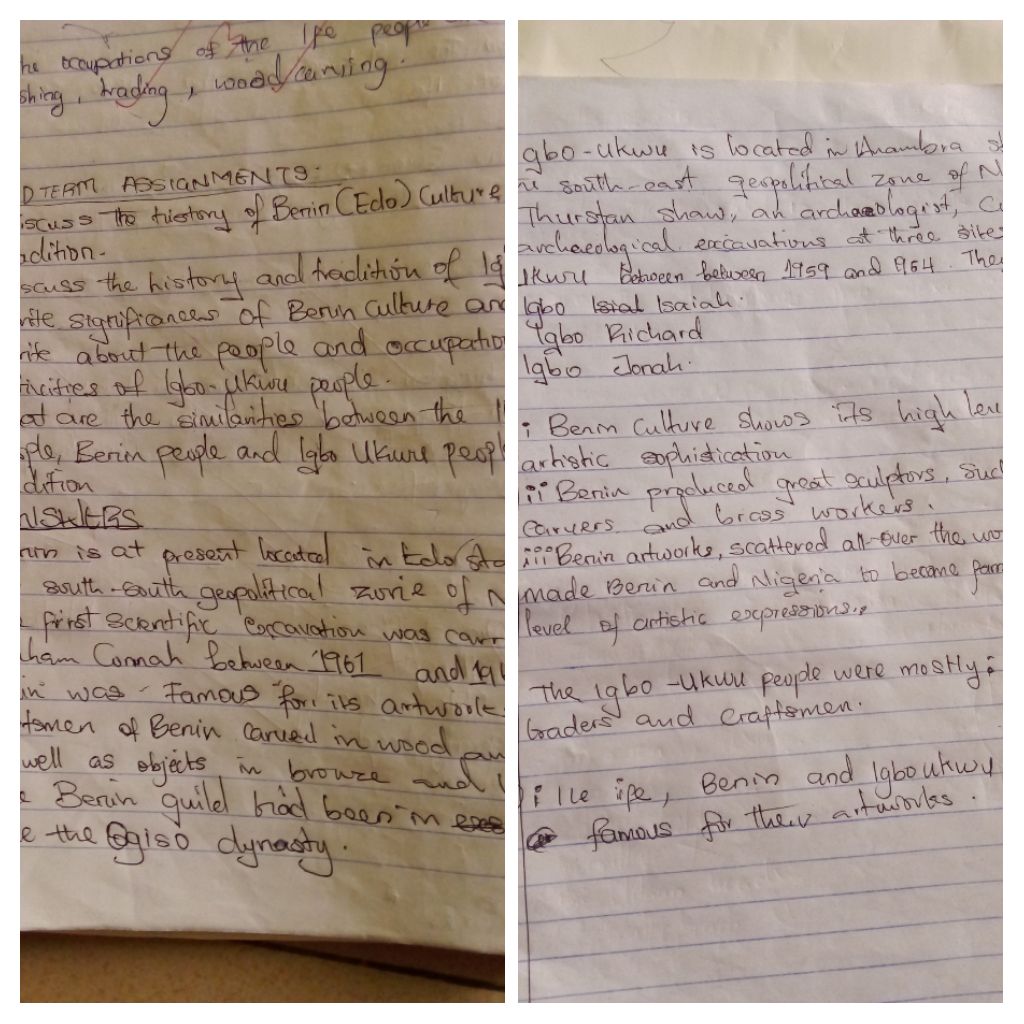 he occupations of the Ife peop
shing, trading, wood carving.
D TERM ASSIGNMENTS.
iscuss the history of Benin (Edo) Culture
adition.
scuss the history and tradition of Ig
rite significances of Benin Culture and
rite about the people and occupatio
tivities of Igbo-Ukwu people.
at are the similarities between the I
ple, Benin people and Igbo Ukwu peopl
dition
NSWERS
nin is at present located in Edo sta
south-south geopolitical zone of N
first scientific excavation was carr
ham Connah between 1961 and 19
in was famous for its artwork
tsmen of Benin carved in wood an
well as objects in bronze and
e Benin guild had been in
e the Ogiso dynasty.
gbo-Ukwu is located in Anambra st
south-east geopolitical zone of N
Thurstan Shaw, an archaeologist, C
archaeological excavations at three sites
Ukwu Between between 1959 and 964. The
Igbo Isaiah.
Igbo Richard
Igbo Jonah.
i Benin culture shows its high leve
artistic sophistication
ii Benin produced great sculptors, suc
carvers and brass workers.
iii Benin artworks, scattered all over the wo
made Benin and Nigeria to become fam
level of artistic expressions.
The Igbo-Ukwu people were mostly:
traders and craftsmen.
i Ile ife, Benin and Igboukwu
famous for their artworks.